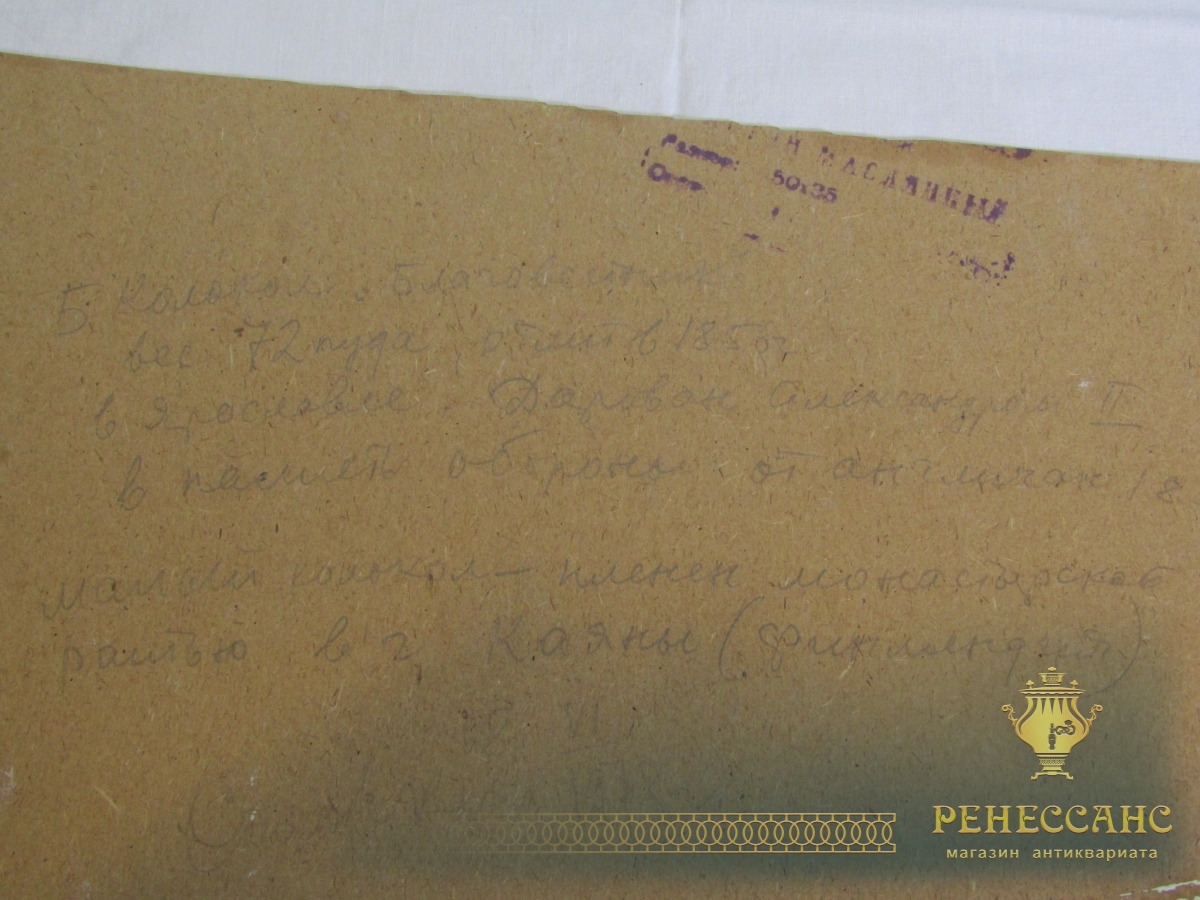 МАСЛЯНЫЙ
Размер: 50х35
Б. Колокол „Благовестник"
вес 72 пуда, отлит в 185 г
в Ярославле. Дарован Александром II
в память обороны от англичан 18
малый колокол – пленен монастырской
ратью в г. Каяны (Финляндия)
VI
РЕНЕССАНС
магазин антиквариата